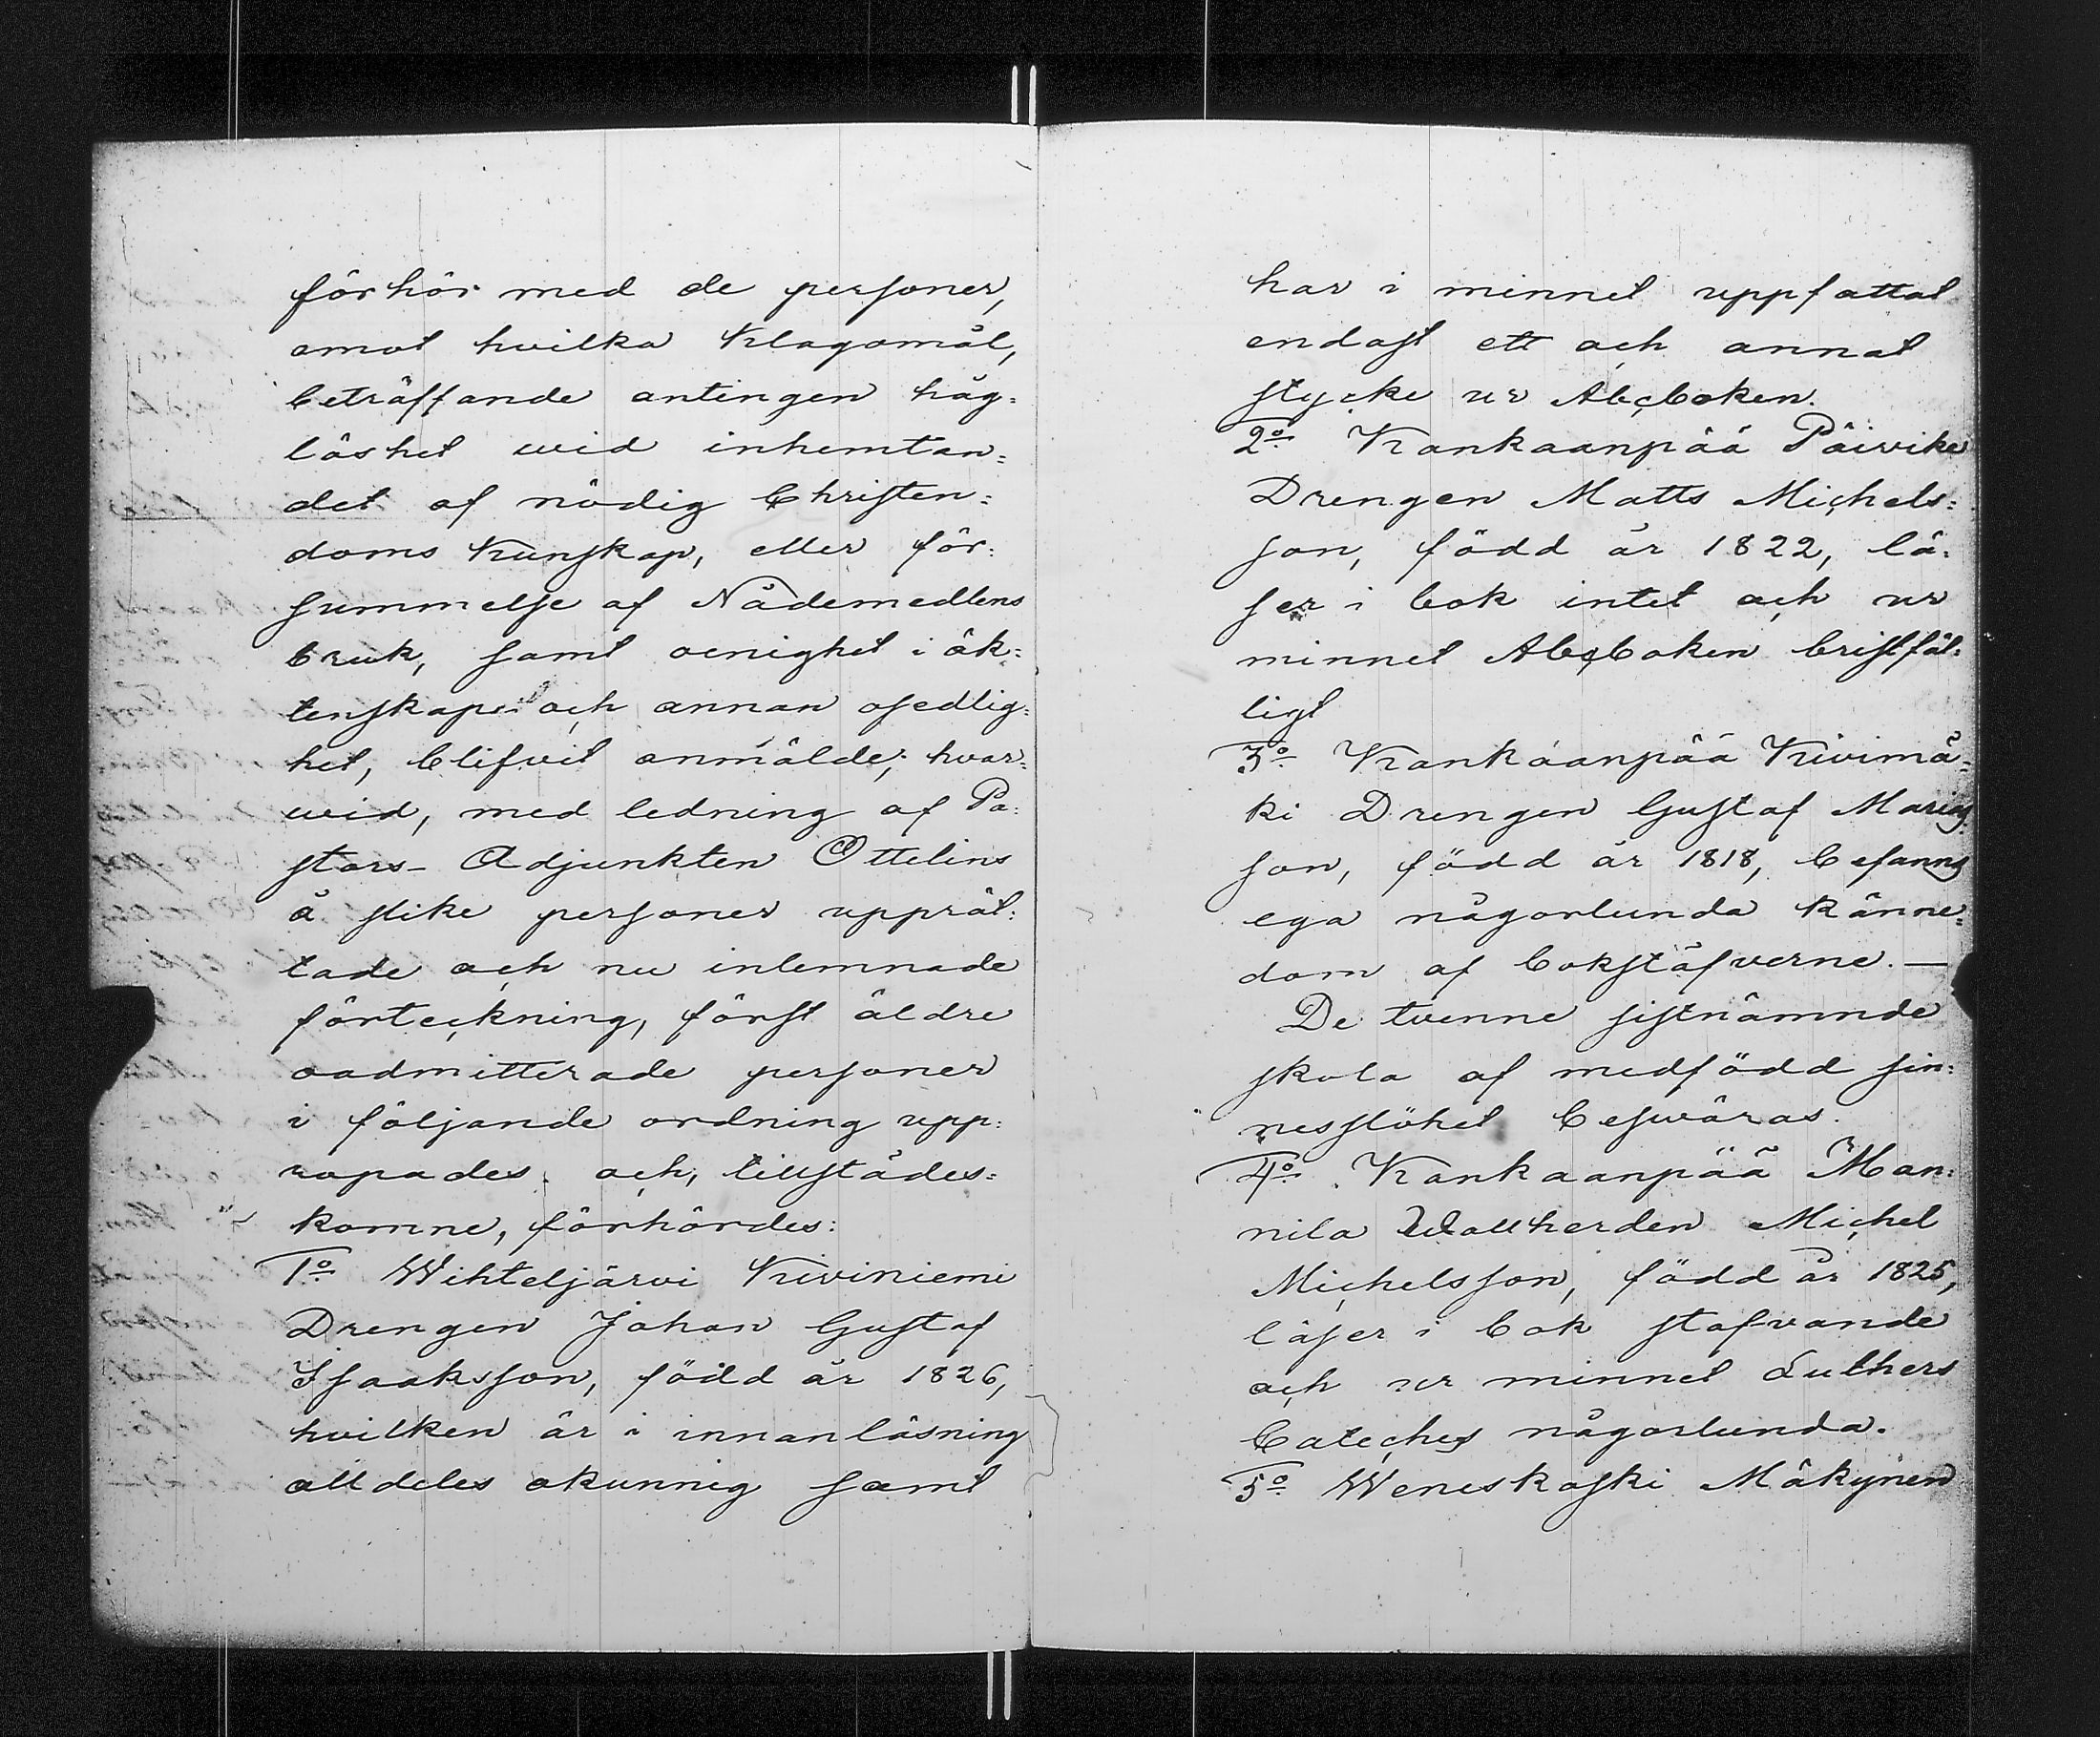 förhör med de personer,
emot hvilka Klagomål,
beträffande antingen håg=
löshet wid inhemtan=
det af nödig Christen=
doms Kunskap, eller för=
summelse af Nådemedlens
bruk, samt oenighet i äk=
tenskap och annan osedlig=
het, blifvit anmälde; hvar=
wid, med ledning af Pa=
stors-Adjunkten Ottelins
å slike personer upprät=
tade och nu inlemnade
förteckning, först äldre
oadmitterade personer
i följande ordning upp=
ropades och, tillstädes=
komne, förhördes:
1o Wihteljärvi Kiviniemi
Drengen Johan Gustaf
Isaaksson, född år 1826,
hvilken är i innanläsning
alldeles okunnig samt
har i minnet uppfattat
endast ett och annat
stycke ur Abcboken.
2o Kankaanpää Päivike
Drengen Matts Michels=
son, född år 1822, lä=
ser i bok intet och ur
minnet Abcboken bristfäl=
ligt
3o Kankaanpää Kivimä=
ki Drengen Gustaf Marias
son, född år 1818, befanns
ega någorlunda känne=
dom af bokstäfverne. —
De tvenne sistnämnde
skola af medfödd sin=
nesslöhet beswäras.
4o Kankaanpää Man=
nila Wallherden Michel
Michelsson, född år 1825,
läser i bok stafvande
och ur minnet Luthers
Cateches någorlunda.
5o Weneskoski Mäkynen